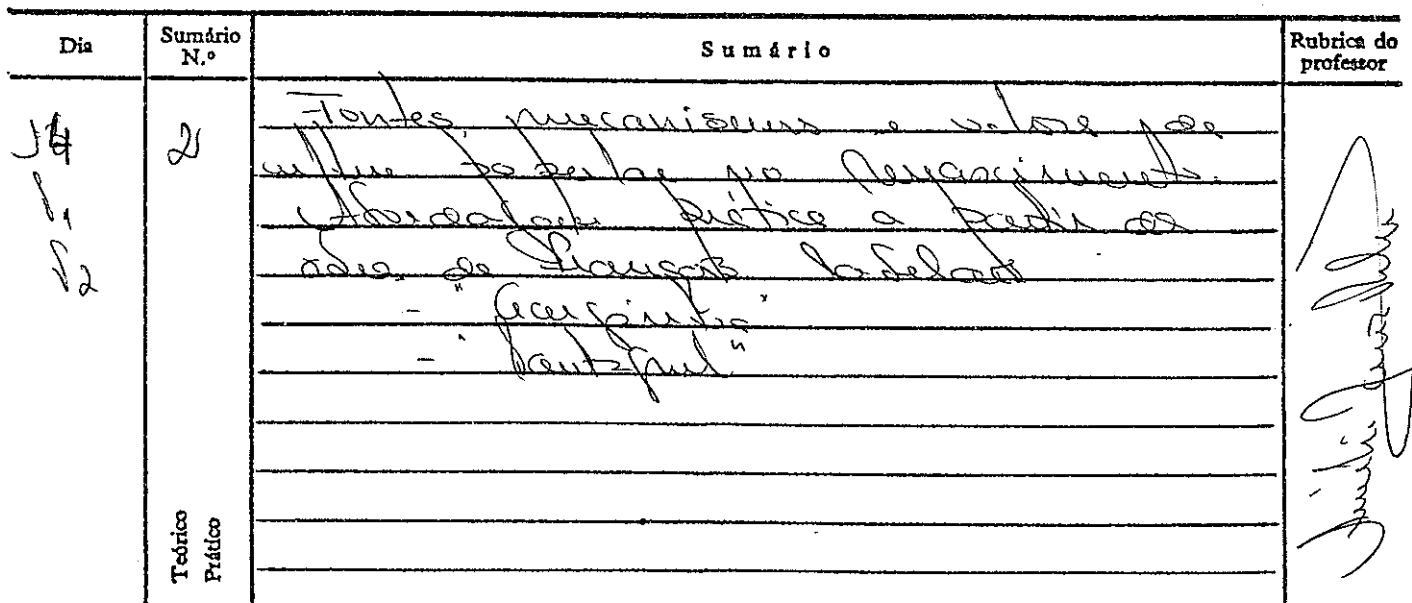 Dia
Sumário N.º
Sumário
Rubrica do professor
14
2
Fontes, mecanismos e valores da
cultura popular no Renascimento.
Abordagem prática a partir da
obra de François Rabelais
- "Gargântua"
- "Pantagruel"
P1
P2
Teórico
Prático